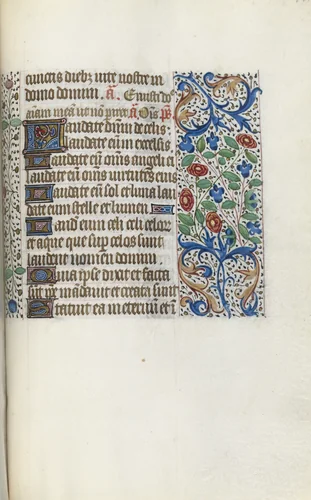 cunctis dieb; vite nostre in
domo domini. A.
Laudate dnm de celis
laudate eum in excelsis
Laudate eu omēs angeli
laudate eu omēs virtutes
Laudate eu sol et luna lau
date eum stelle et lumen
Laud eum celi celor
et aque que sup celos sunt
laudent nomen domini
Quia ipse dixit et facta
sūt ipe mādavit et creata sunt
Statuit ea in eternum et ī